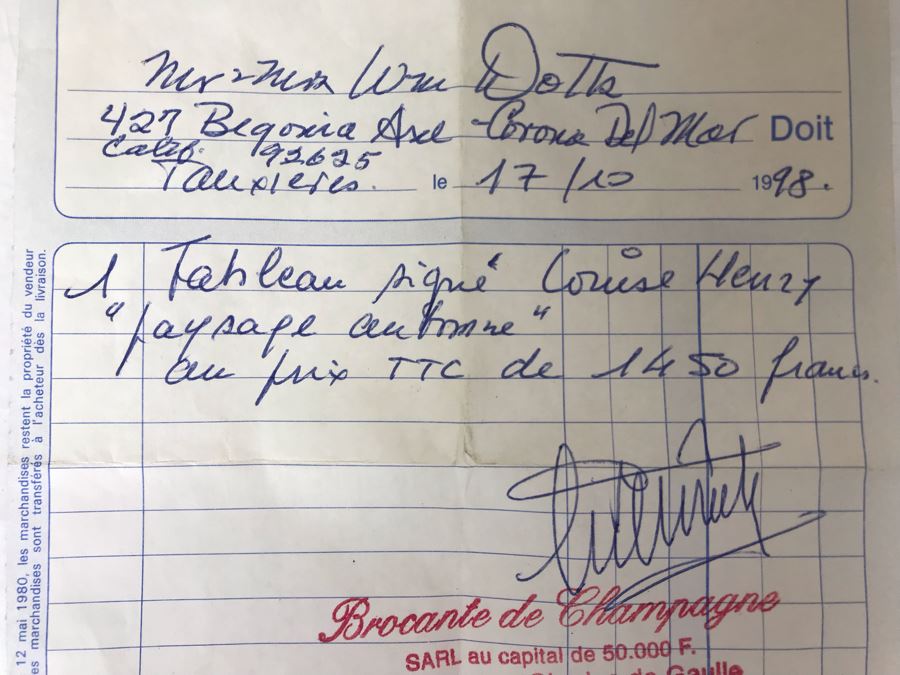 Mr & Mrs Wm Dotts
427 Begonia Ave - Corona Del Mar Doit
Calif. 92625
Tauxières. le 17/10 1998.
1 Tableau signé Louise Henry
"paysage automne"
au prix TTC de 1450 francs.
Brocante de Champagne
SARL au capital de 50.000 F.
de Gaulle
12 mai 1980, les marchandises restent la propriété du vendeur
es marchandises sont transférés à l'acheteur dès la livraison.